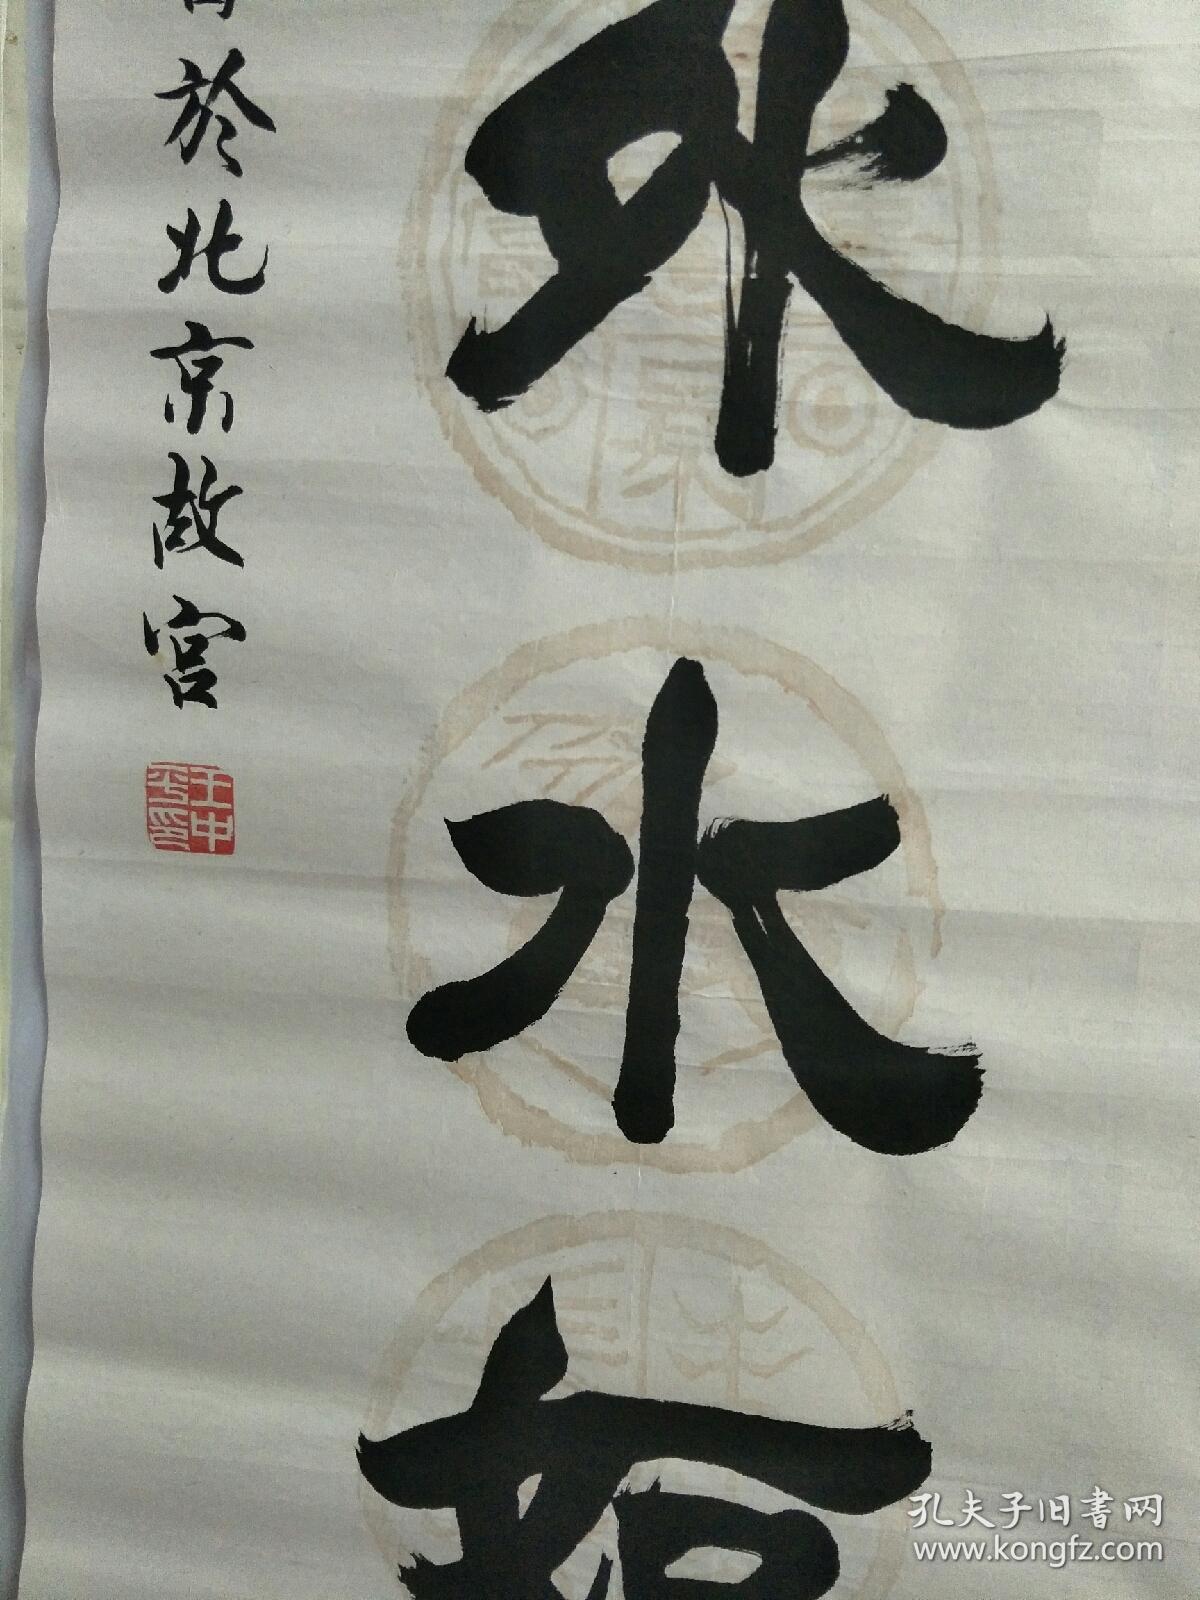 外水如
於北京故宫
王中平印
孔夫子旧书网
www.kongfz.com